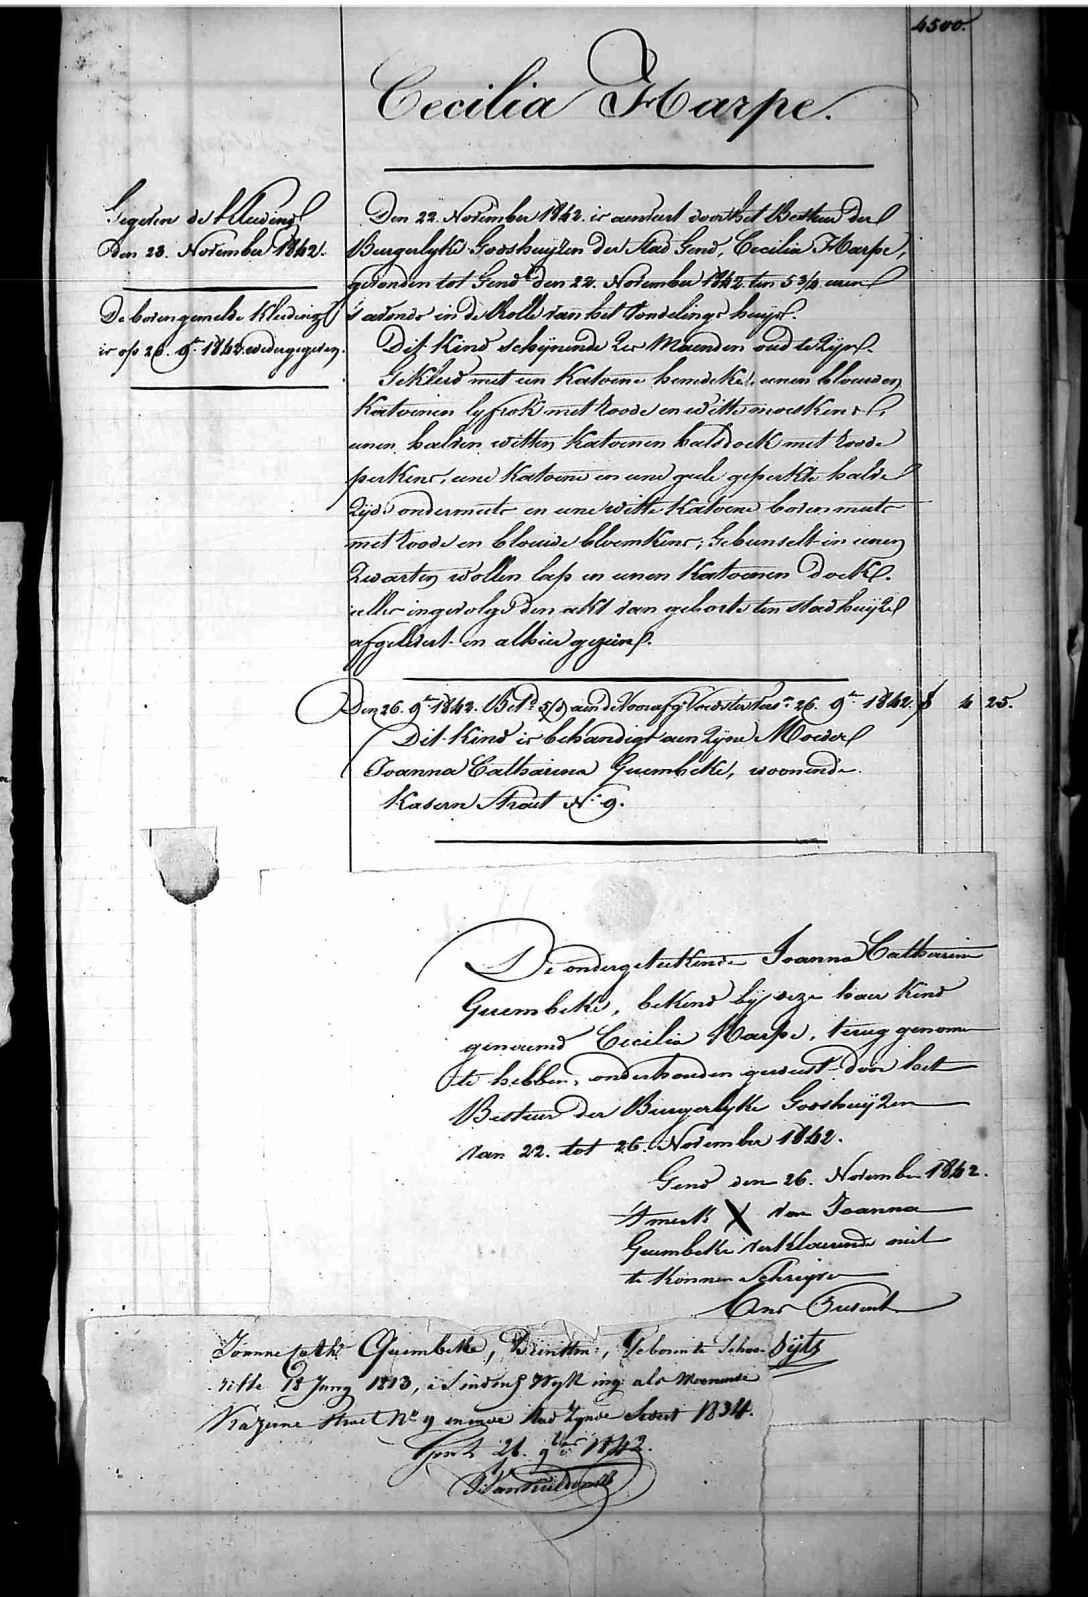 4500.
Cecilia Harpe.
Gegeven de kleeding
den 23. November 1842.
De bovengemelde Kleeding
is op 26. 9r. 1842. wedergegeven.
Den 22. November 1842. is aenveert door het Bestuer der
Burgerlyke Godshuyzen der stad Gend, Cecilia Harpe,
gevonden tot Gend den 22. November 1842. ten 5 3/4 uren
's avonds in de Rolle van het Vondelings huys.
Dit Kind schynende zes Maenden oud te zyn.
Gekleed met een Katoene hemdeke, eenen blauwen
Katoenen lyfrok met roode en witte moeskens,
eenen halven witten Katoenen halsdoek met roode
perkens, eene Katoene en eene geele geperkte halve
zyde ondermuts en eene witte Katoene boven muts
met roode en blauwe bloemkens; Gebunselt in eenen
zwarten wollen lap en eenen Katoenen doek.
alles ingevolge den akt van geboorte ten stadhuyze
afgelevert en alhier gezien.
Den 26. 9r. 1842. Bet. 5/d aen de Voorafg. Voedster 26. 9r. 1842. f 4 25.
Dit Kind is behandigt aen zyne Moeder
Joanna Catharina Guembeke, woonende
Kasern Straet No. 9.
De ondergeteekende Joanna Catharina
Guembeke, bekend by deze haer Kind
genaemd Cecilia Harpe, terug genomen
te hebben, onderhouden geweest door het
Bestuer der Burgerlyke Godshuyzen
van 22. tot 26 November 1842.
Gend den 26. November 1842.
't merk X van Joanna
Guembeke verklarende niet
te Konnen Schryven
Ons Present
Joanne Cath. Guembeke, geboren te
18 Juny 1813, is in dens Wyk ing: als woonende
Kazerne straet No 9 en inde stad zynde sedert 1834.
Gent 26 9ber 1842.